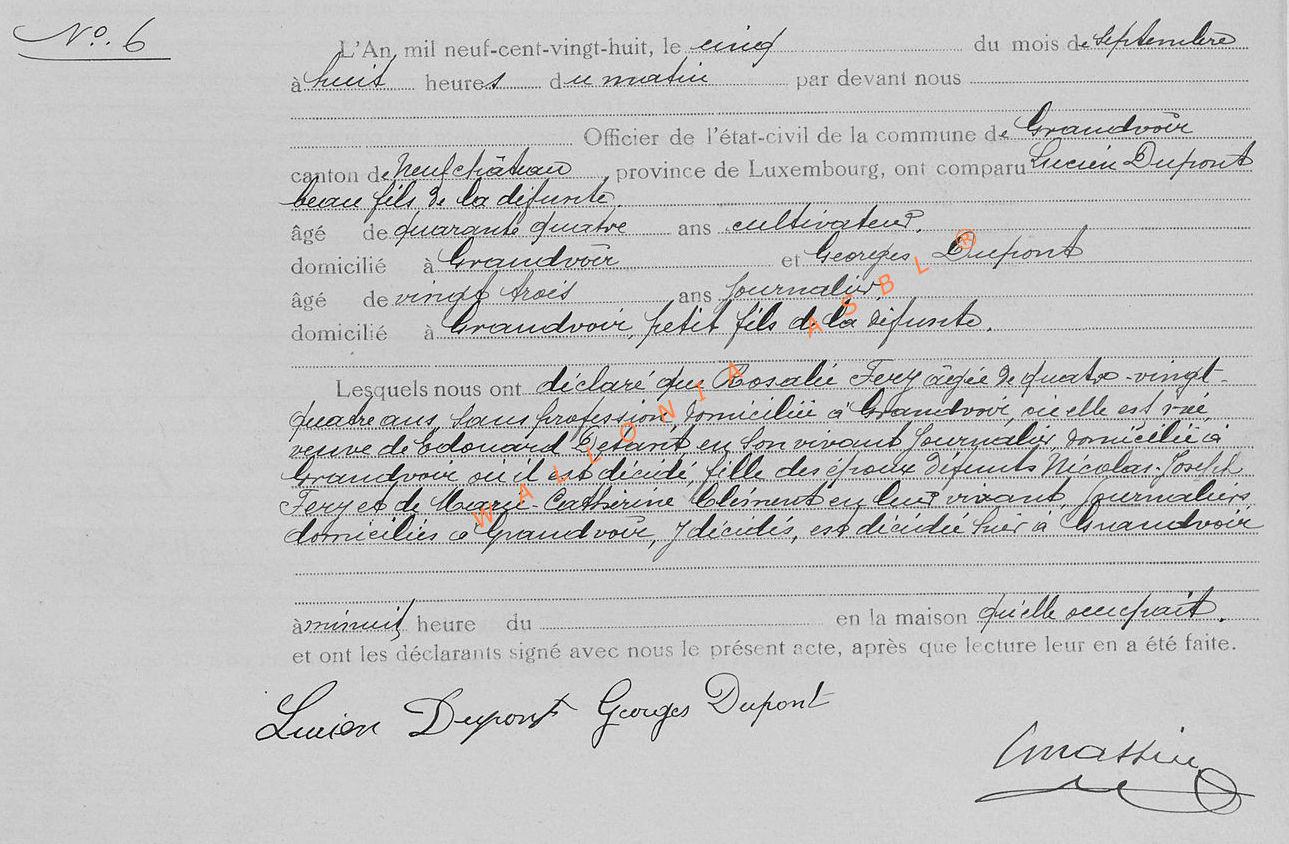 No. 6
L'An, mil neuf-cent-vingt-huit, le cinq du mois de septembre
à huit heures du matin par devant nous
Officier de l'état-civil de la commune de Grandvoir
canton de Neufchâteau, province de Luxembourg, ont comparu Lucien Dupont
beau fils de la défunte.
âgé de quarante quatre ans cultivateur.
domicilié à Grandvoir et Georges Dupont
âgé de vingt trois ans journalier,
domicilié à Grandvoir, petit fils de la défunte.
Lesquels nous ont déclaré que Rosalie Fery âgée de quatre-vingt-
quatre ans, sans profession, domiciliée à Grandvoir, où elle est née,
veuve de Edouard en son vivant journalier domicilié à
Grandvoir où il est décédé, fille des époux défunts Nicolas-Joseph
Fery et de Marie-Catherine Clément en leur vivant, journaliers,
domiciliés à Grandvoir, y décédés, est décédée hier à Grandvoir
à minuit, heure du en la maison qu'elle occupait.
et ont les déclarants signé avec nous le présent acte, après que lecture leur en a été faite.
Lucien Dupont Georges Dupont
WALLONIA ASBL®